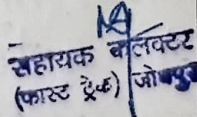 सहायक कलेक्टर
(फास्ट ट्रेक) जोधपुर